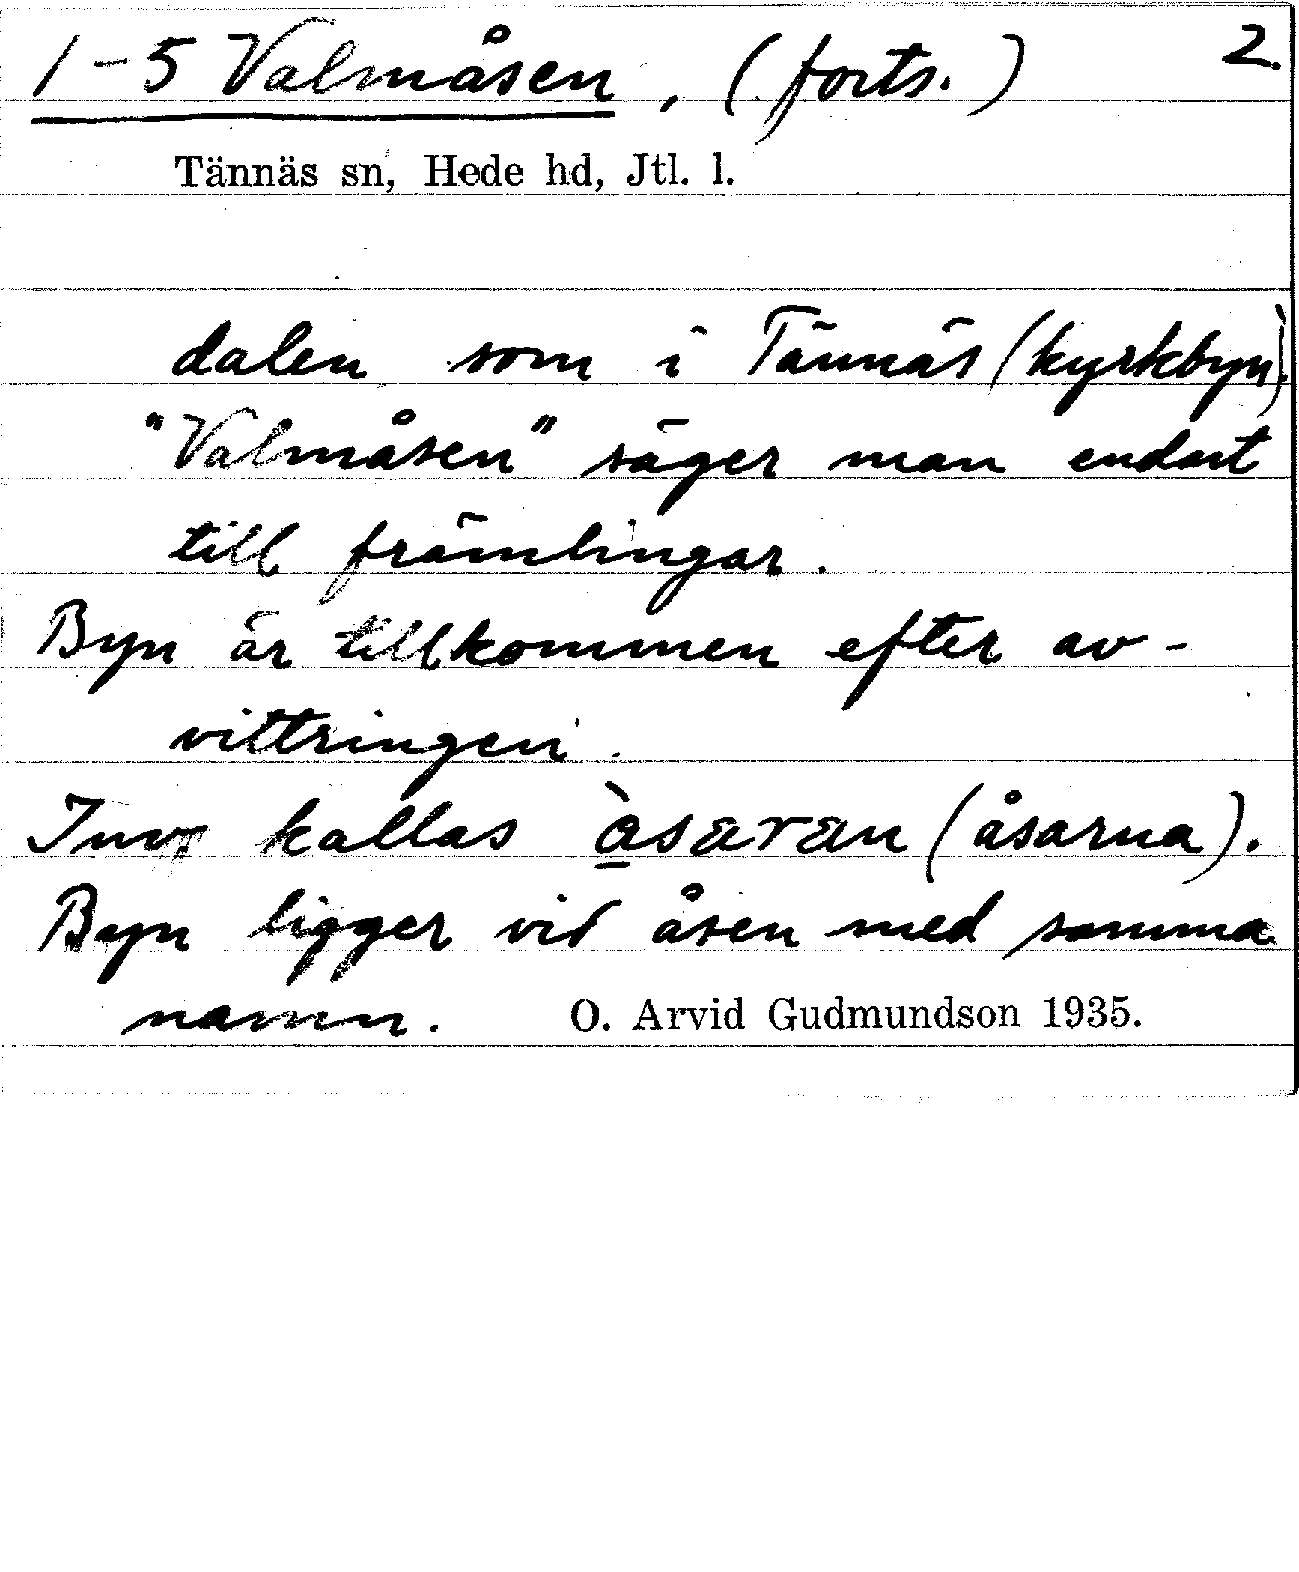 1-5 Valmåsen, (forts.) 2.
Tännäs sn, Hede hd, Jtl. l.
dalen som i Tännäs (kyrkbyn).
"Valmåsen" säger man endast
till främlingar.
Byn är tillkommen efter av-
vittringen.
Inv. kallas åsaran (åsarna).
Byn ligger vid åsen med samma
namn. O. Arvid Gudmundson 1935.